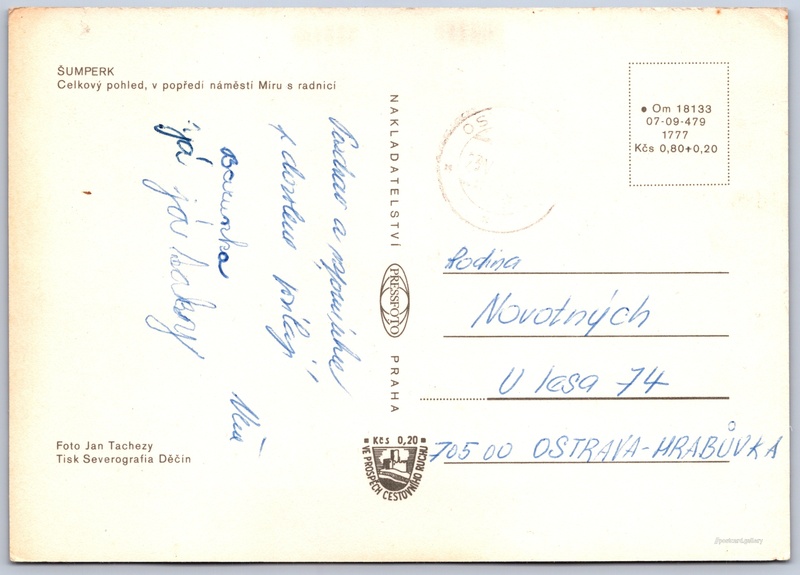 ŠUMPERK
Celkový pohled, v popředí náměstí Míru s radnicí
Pozdrav a vzpomínku
z dovolené posílají
Barunka
já
Foto Jan Tachezy
Tisk Severografia Děčín
NAKLADATELSTVÍ
PRESSFOTO
PRAHA
Kčs 0,20
VE PROSPĚCH CESTOVNÍHO RUCHU
Om 18133
07-09-479
1777
Kčs 0,80+0,20
Rodina
Novotných
U lesa 74
705 00 OSTRAVA-HRABŮVKA